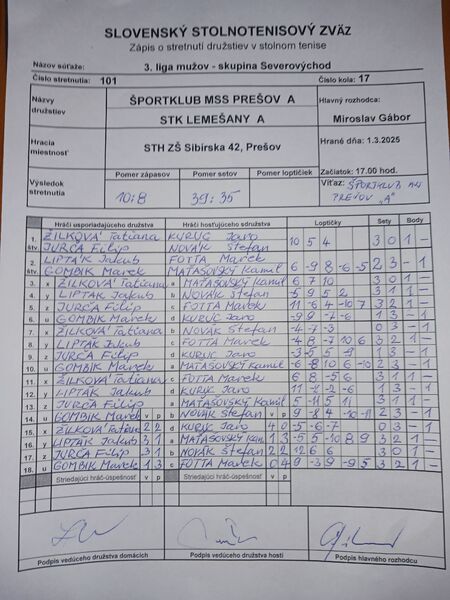 SLOVENSKÝ STOLNOTENISOVÝ ZVÄZ
Zápis o stretnutí družstiev v stolnom tenise
Názov súťaže: 3. liga mužov - skupina Severovýchod
Číslo stretnutia: 101 Číslo kola: 17
Názvy družstiev ŠPORTKLUB MSS PREŠOV A Hlavný rozhodca:
STK LEMEŠANY A Miroslav Gábor
Hracia miestnosť STH ZŠ Sibírska 42, Prešov Hrané dňa: 1.3.2025
Výsledok stretnutia Pomer zápasov Pomer setov Pomer loptičiek Začiatok: 17.00 hod.
10:8 39:35 Víťaz: ŠPORTKLUB
PREŠOV "A"
Hráči usporiadajúceho družstva Hráči hosťujúceho družstva Loptičky Sety Body
1. štv. ŽILKOVÁ Tatiana KURUC Jaro 10 5 4 3 0 1 -
JURČA Filip NOVÁK Štefan
2. štv. LIPTÁK Jakub FOTTA Marek 6 -9 8 -6 -5 2 3 - 1
GOMBÍK Marek MATAŠOVSKÝ Kamil
3. x ŽILKOVÁ Tatiana a MATAŠOVSKÝ Kamil 6 7 10 3 0 1 -
4. y LIPTÁK Jakub b NOVÁK Štefan
5. z JURČA Filip c FOTTA Marek 3 2 1 -
6. u GOMBÍK Marek d KURUC Jaro -9 9 -7 -6 1 3 - 1
7. x ŽILKOVÁ Tatiana b NOVÁK Štefan -4 -7 -3 0 3 - 1
8. y LIPTÁK Jakub c FOTTA Marek 3 2 1 -
9. z JURČA Filip d KURUC Jaro
10. u GOMBÍK Marek a MATAŠOVSKÝ Kamil 2 3 - 1
11. x ŽILKOVÁ Tatiana c FOTTA Marek
12. y LIPTÁK Jakub d KURUC Jaro
13. z JURČA Filip a MATAŠOVSKÝ Kamil
14. u GOMBÍK Marek v p b NOVÁK Štefan v p
15. x ŽILKOVÁ Tatiana 2 2 d KURUC Jaro 4 0 -5 -6 -7 0 3 - 1
16. y LIPTÁK Jakub 3 1 a MATAŠOVSKÝ 1 3 -5 5 -10 8 9 3 2 1 -
17. z JURČA Filip 3 1 b NOVÁK Štefan 2 2 12 6 6 3 0 1 -
18. u GOMBÍK Marek 1 3 c FOTTA Marek 0 4 9 -3 9 -9 5 3 2 1 -
Striedajúci hráč-úspešnosť v p Striedajúci hráč-úspešnosť v p
Podpis vedúceho družstva domácich Podpis vedúceho družstva hostí Podpis hlavného rozhodcu